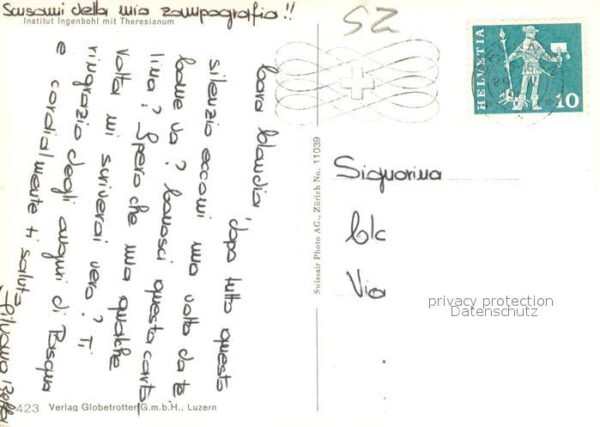 Scusami della mia zampografia!!
Institut Ingenbohl mit Theresianum
52
HELVETIA
10
Cara Claudia, dopo tutto questo
silenzio eccomi una volta da te
Come va? Conosci questa carto
lina? Spero che una qualche
volta mi scriverai vero? Ti
ringrazio degli auguri di Pasqua
e cordialmente ti saluto
Silvana
Swissair Photo AG., Zürich No. 11039
Signorina
Via
privacy protection
Datenschutz
423 Verlag Globetrotter G.m.b.H., Luzern